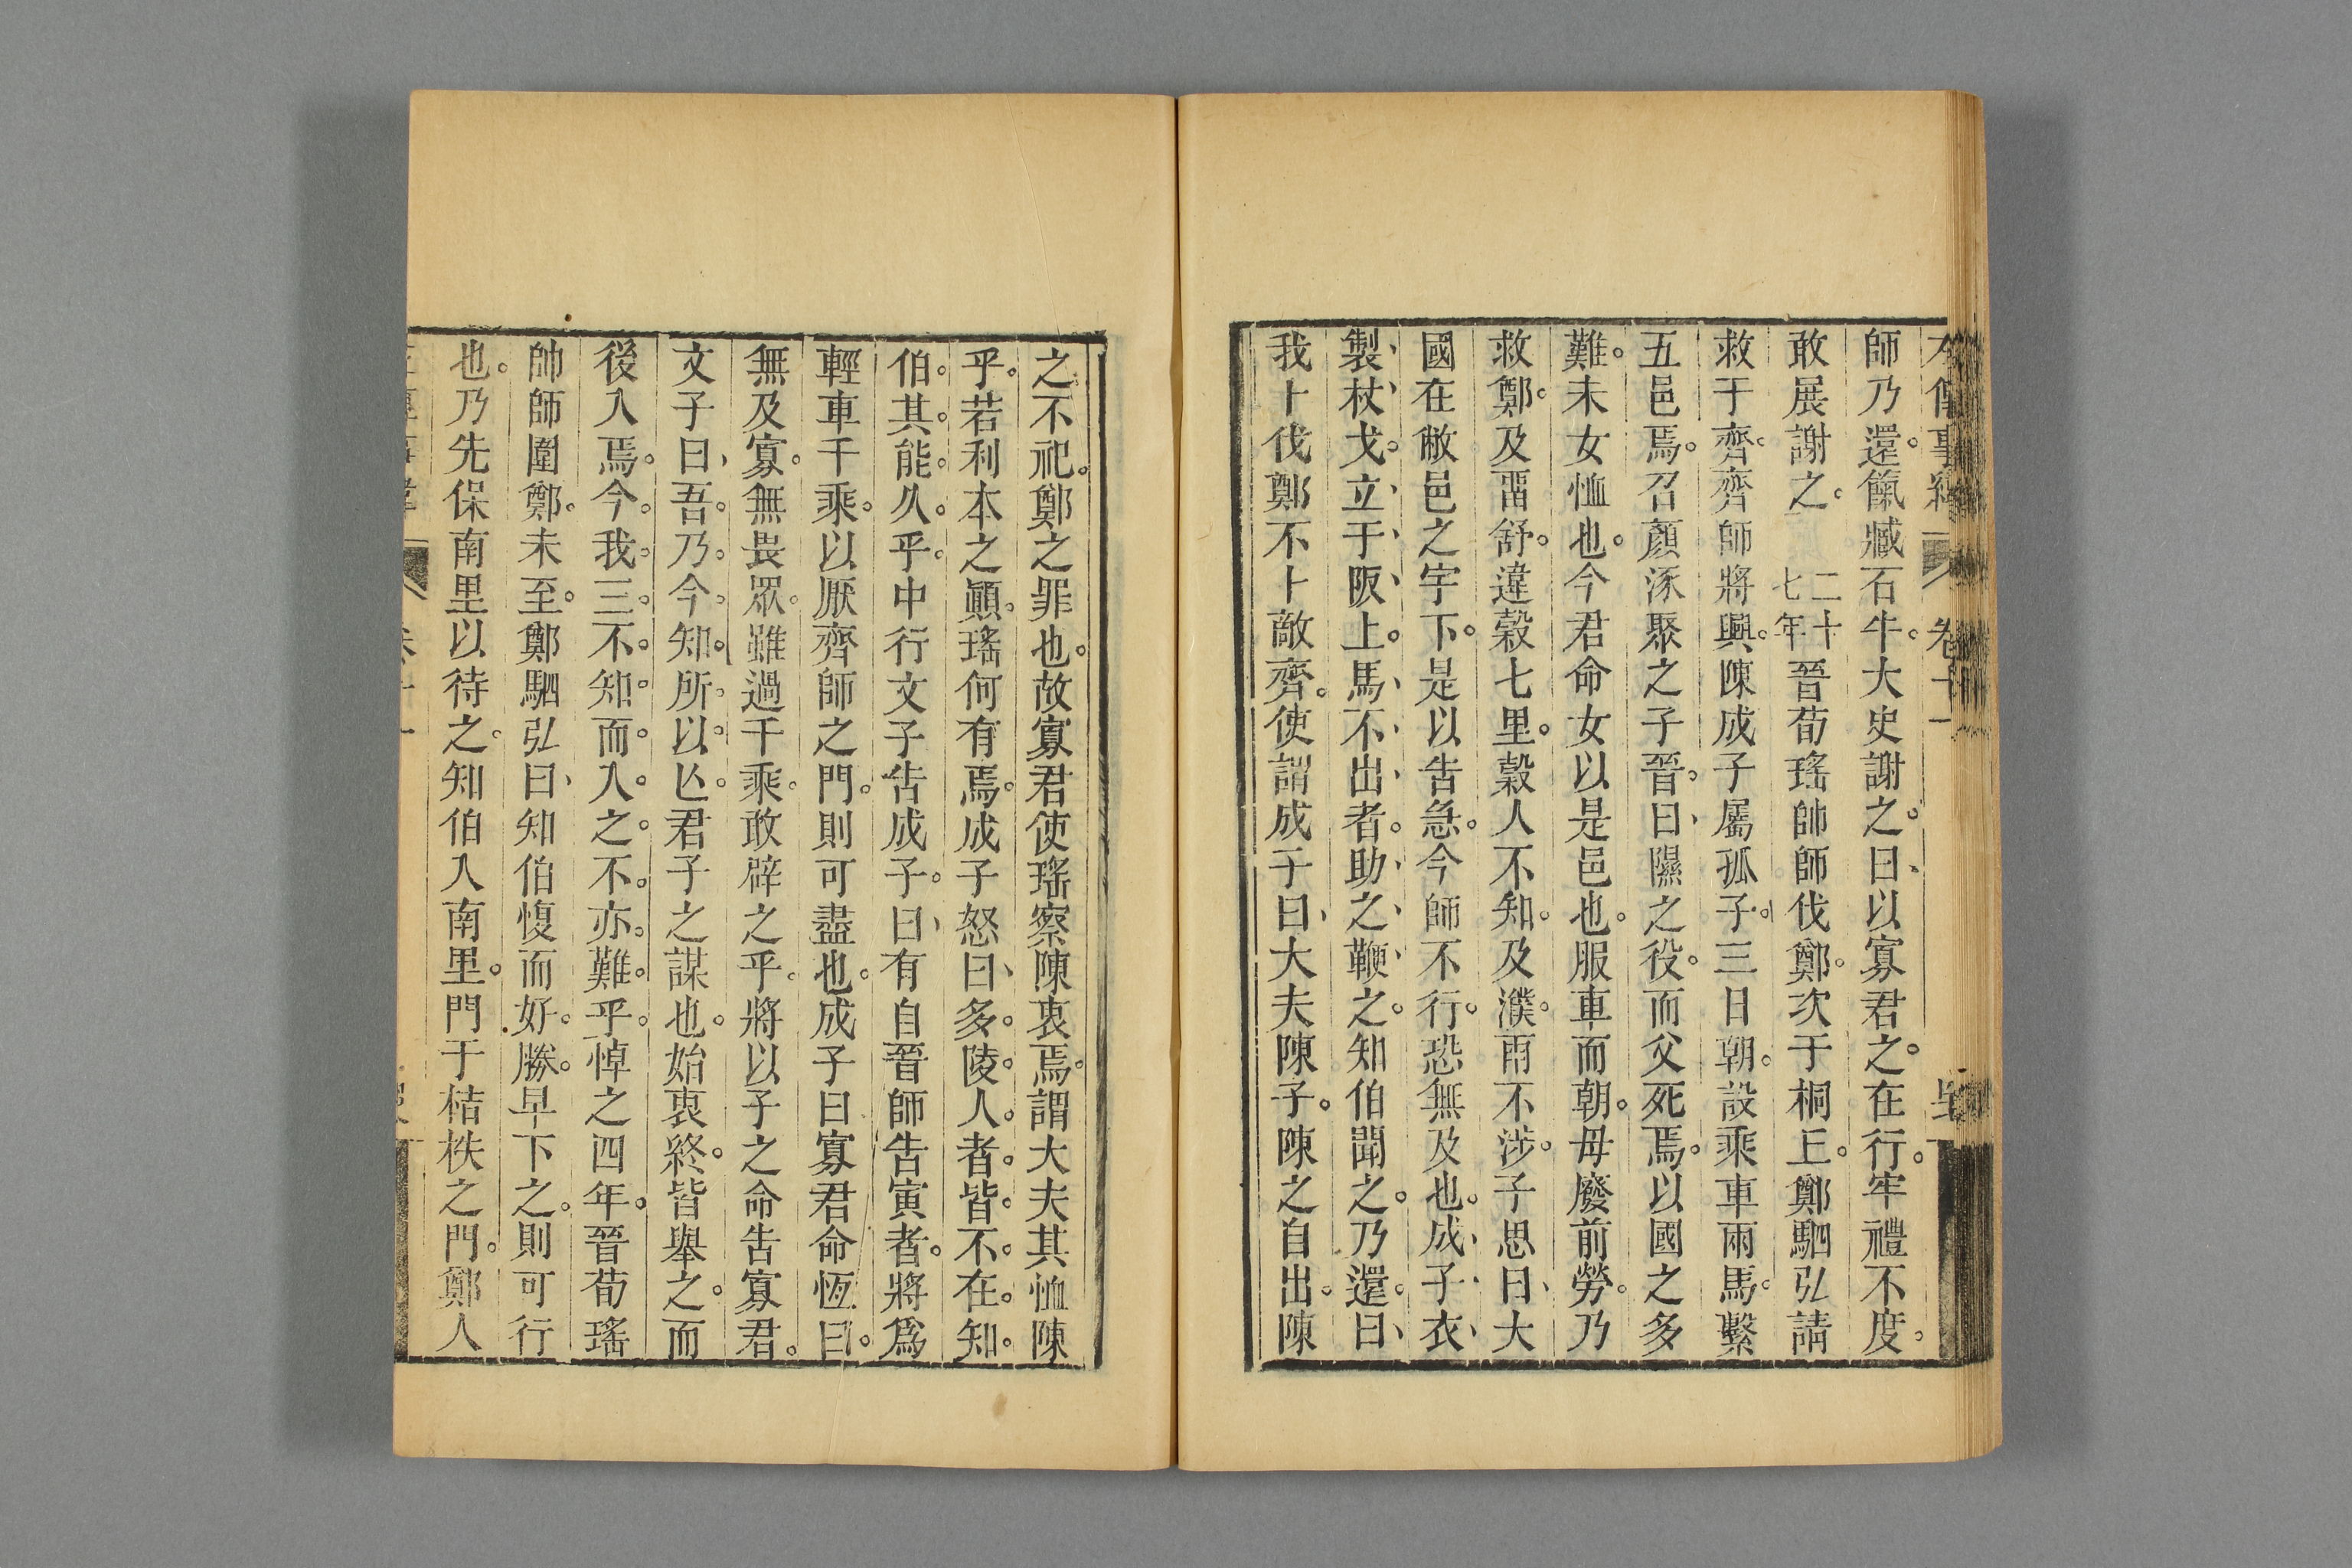 師乃還。餼臧石牛。大史謝之。曰、以寡君之。在行。牢禮不度。
敢展謝之。二十七年晉荀瑤帥師伐鄭。次于桐丘。鄭駟弘請
救于齊。齊師將興。陳成子屬孤子。三日朝。設乘車兩馬。繫
五邑焉。召顏涿聚之子晉。曰、隰之役。而父死焉。以國之多
難。未女恤也。今君命女以是邑也。服車而朝。毋廢前勞。乃
救鄭。及畱舒。違穀七里。穀人不知。及濮。雨不涉。子思曰、大
國在敝邑之宇下。是以告急。今師不行。恐無及也。成子衣
製、杖戈。立于阪上。馬不出者。助之鞭之。知伯聞之。乃還。曰、
我卜伐鄭不卜敵齊。使謂成子曰、大夫陳子。陳之自出。陳
之不祀。鄭之罪也。故寡君使瑤察陳衷焉。謂大夫其恤陳
乎。若利本之顚。瑤何有焉。成子怒曰、多。陵。人。者。皆。不。在。知。
伯。其。能。久。乎。中行文子告成子。曰、有自晉師告寅者。將爲
輕車千乘。以厭齊師之門。則可盡也。成子曰寡君命恆。曰。
無及寡。無畏眾。雖過千乘。敢辟之乎。將以子之命告寡君。
文子曰、吾。乃。今。知。所。以。亾。君子之謀也。始衷終。皆舉之。而
後入焉。今。我。三。不。知。而。入。之。不。亦。難。乎。悼之四年。晉荀瑤
帥師圍鄭。未至。鄭駟弘曰、知伯愎而好。勝。早下之。則可行
也。乃先保南里以待之。知伯入南里。門于桔柣之門。鄭人